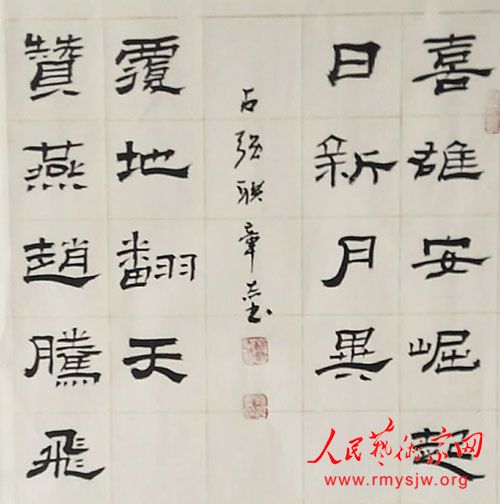 喜雄安崛起
日新月異
贊燕趙騰飛
覆地翻天
占强联章
人民藝術家网
www.rmysjw.org